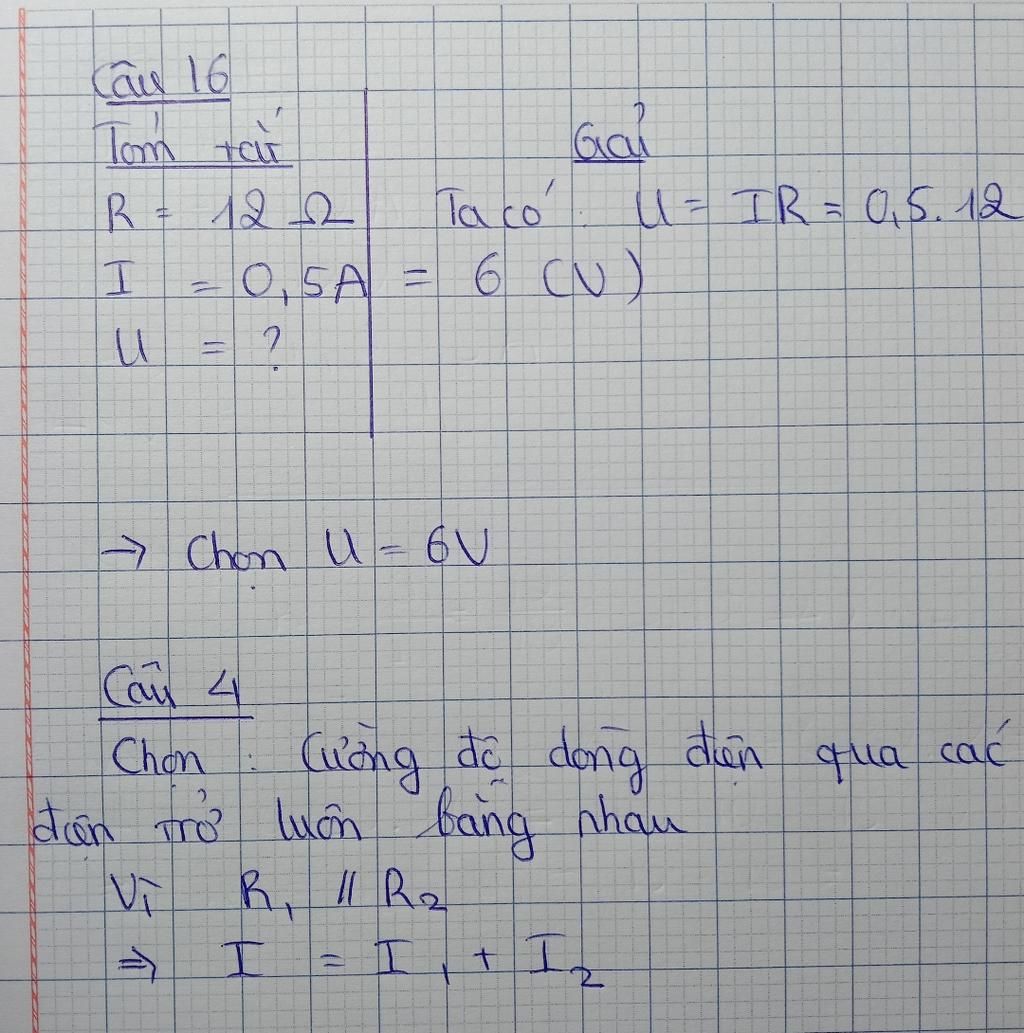 Câu 16
Tóm tắt
R = 12 Ω
I = 0,5A
U = ?
Giải
Ta có : U = IR = 0,5.12
= 6 (V)
→ Chọn U = 6V
Câu 4
Chọn : Cường độ dòng điện qua các
điện trở luôn bằng nhau
Vì R₁ // R₂
⇒ I = I₁ + I₂